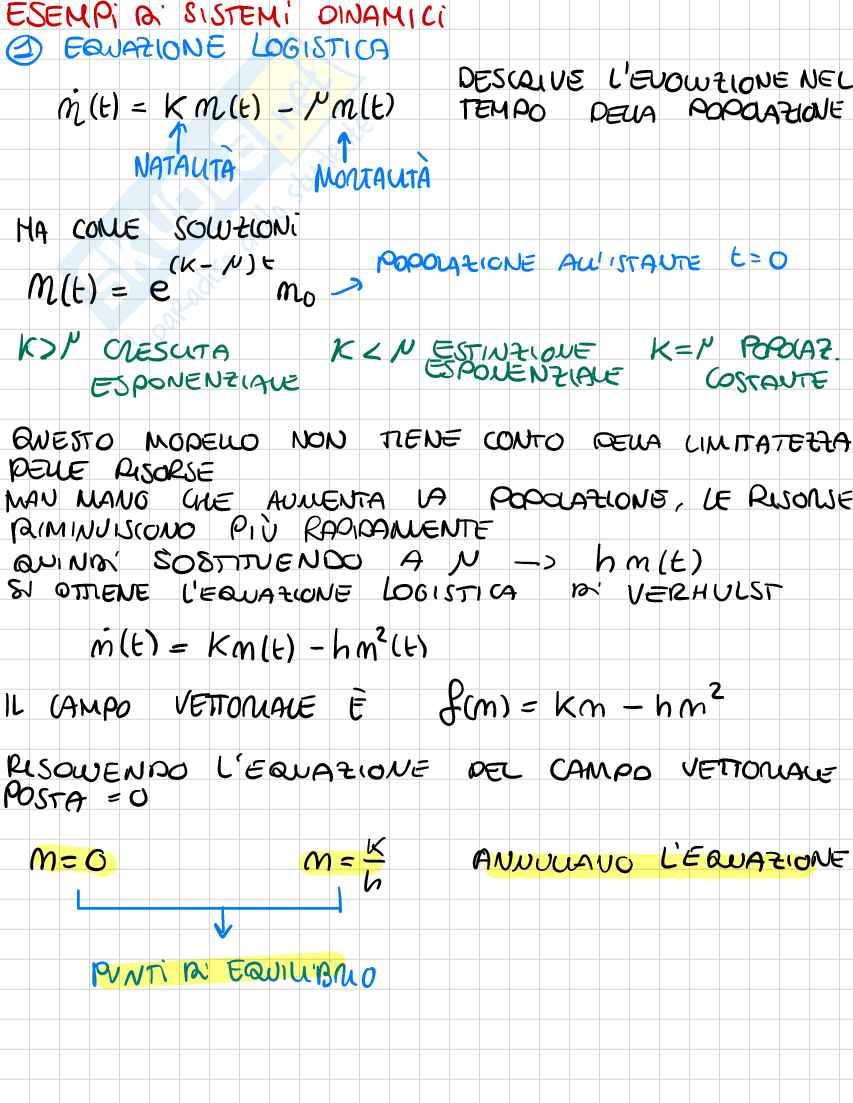 ESEMPI DI SISTEMI DINAMICI
① EQUAZIONE LOGISTICA
ṅ(t) = K n(t) - μ n(t)
DESCRIVE L'EVOLUZIONE NEL
TEMPO DELLA POPOLAZIONE
NATALITÀ
MORTALITÀ
HA COME SOLUZIONI
n(t) = e^(K-μ)t n₀ → POPOLAZIONE ALL'ISTANTE t=0
K>μ CRESCITA ESPONENZIALE
K<μ ESTINZIONE ESPONENZIALE
K=μ POPOLAZ. COSTANTE
QUESTO MODELLO NON TIENE CONTO DELLA LIMITATEZZA
DELLE RISORSE
MAN MANO CHE AUMENTA LA POPOLAZIONE, LE RISORSE
DIMINUISCONO PIÙ RAPIDAMENTE
QUINDI SOSTITUENDO A μ → h n(t)
SI OTTIENE L'EQUAZIONE LOGISTICA DI VERHULST
ṅ(t) = Kn(t) - hn²(t)
IL CAMPO VETTORIALE È f(n) = Kn - hn²
RISOLVENDO L'EQUAZIONE DEL CAMPO VETTORIALE
POSTA = 0
n=0 n=K/h ANNULLANO L'EQUAZIONE
PUNTI DI EQUILIBRIO